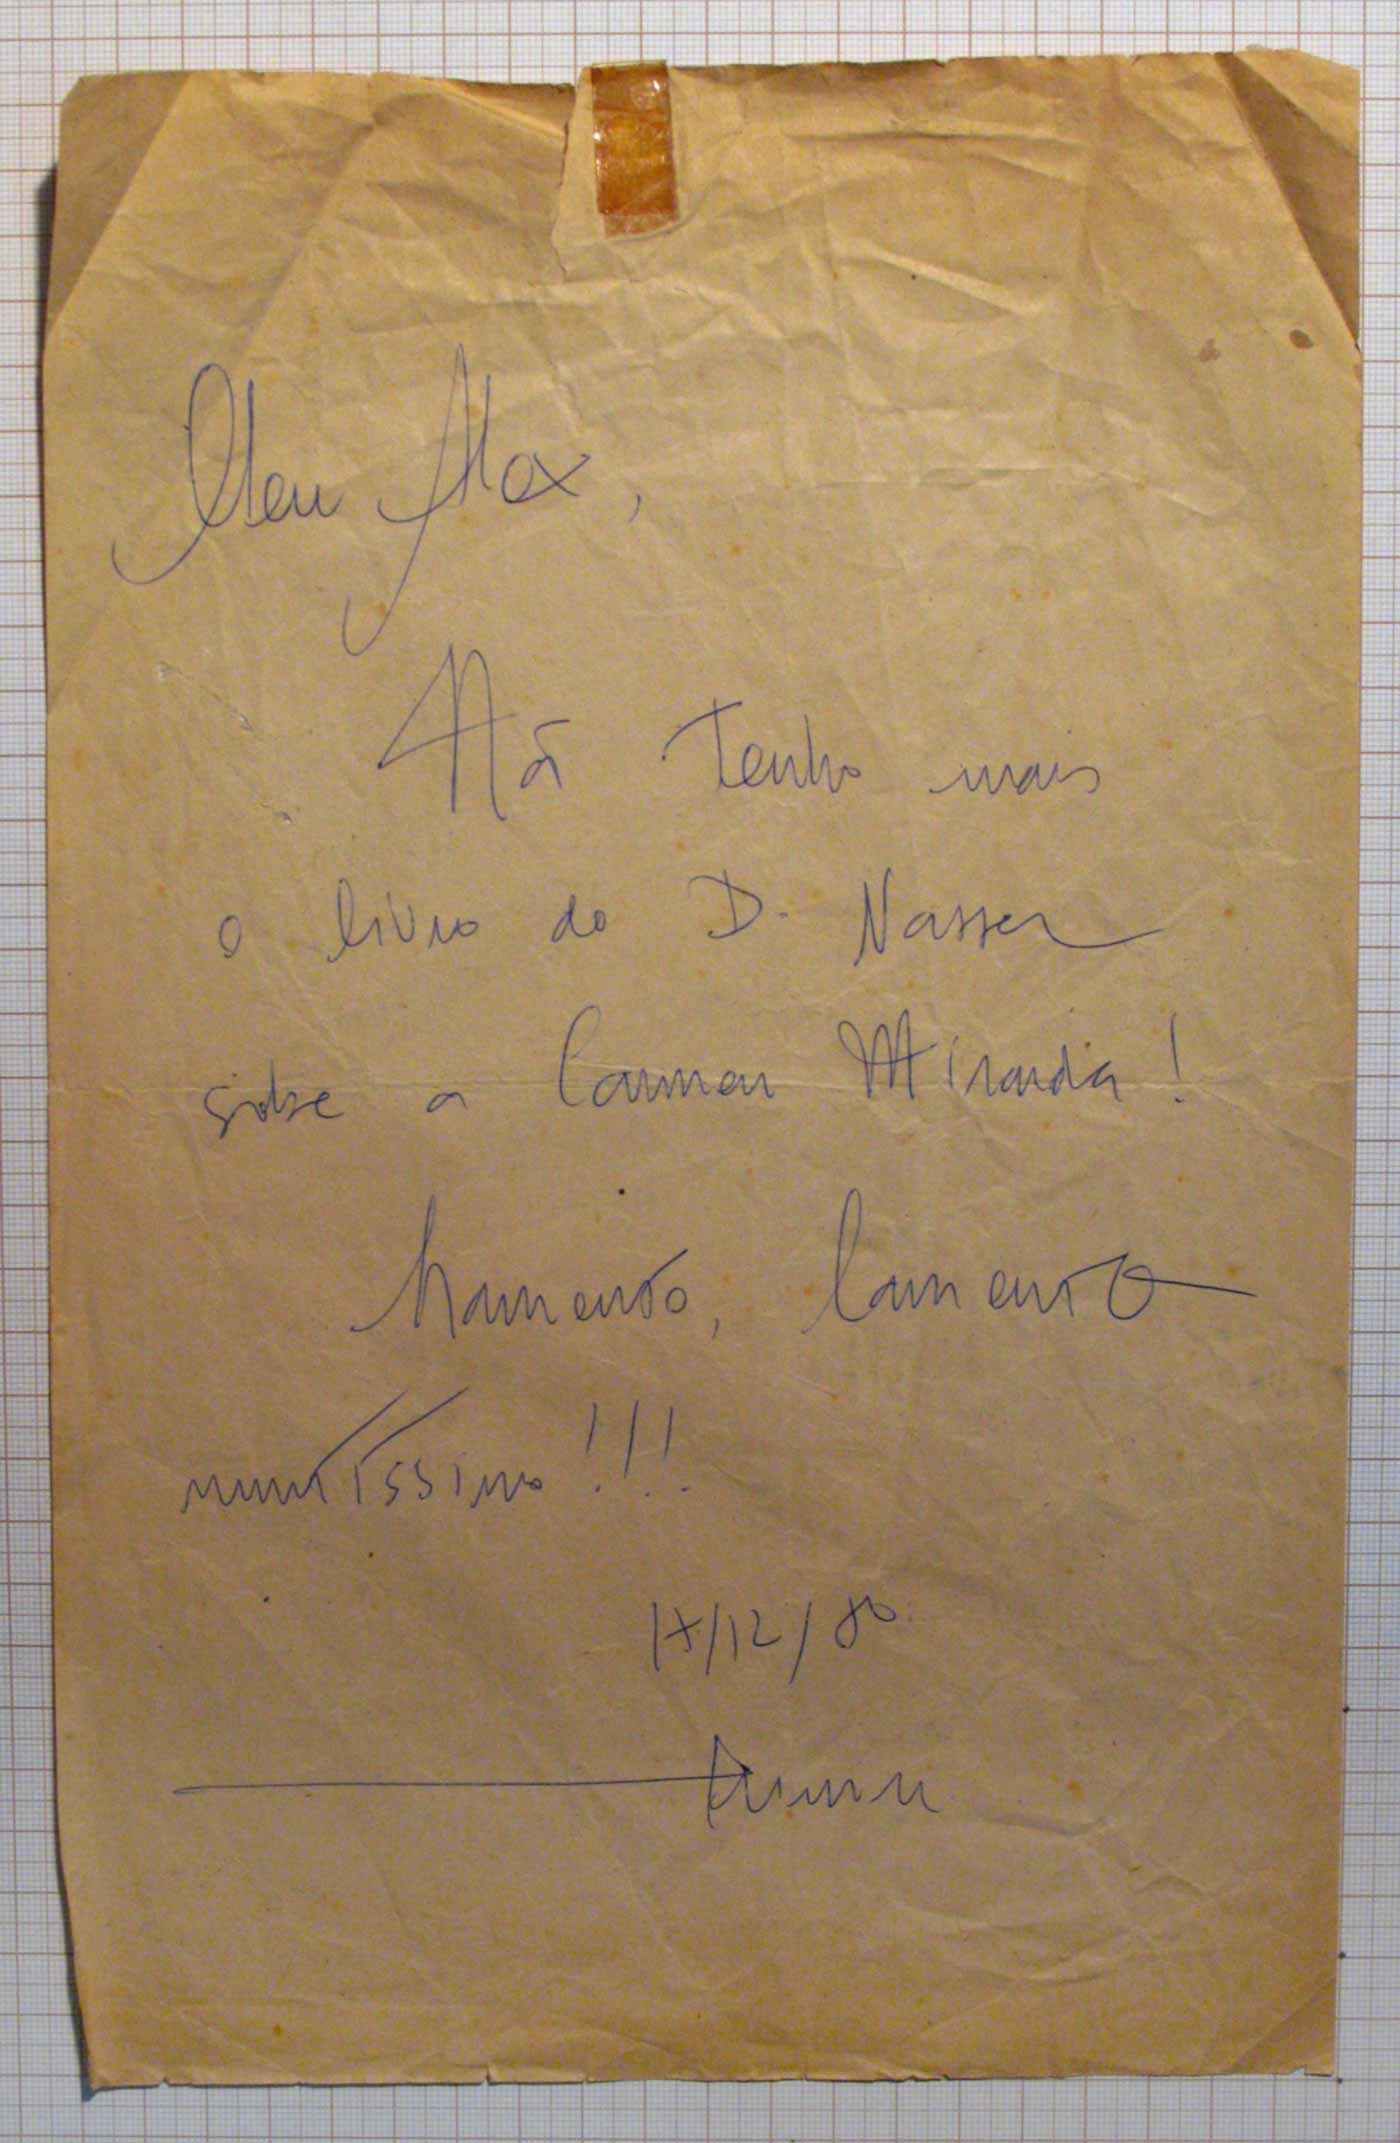 Meu Alex,
Não tenho mais
o livro do D. Nasser
sobre a Carmen Miranda!
Lamento, lamento
muitíssimo!!!
17/12/80